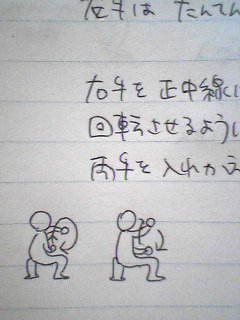 左手は たんでん
右手を 正中線に
回転させるように
両手を 入れかえ